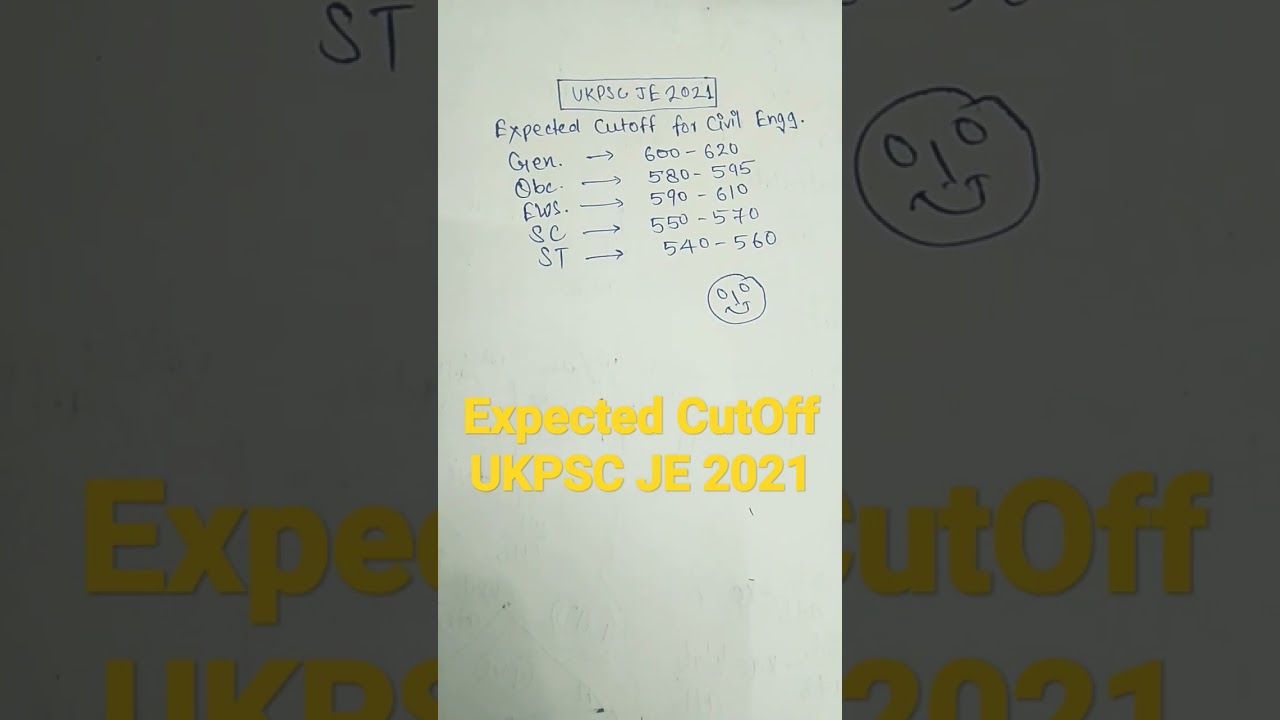 UKPSC JE 2021
Expected Cutoff for Civil Engg.
Gen. → 600 - 620
Obc. → 580 - 595
EWS. → 590 - 610
SC → 550 - 570
ST → 540 - 560
Expected CutOff
UKPSC JE 2021
ST
Expe
CutOff
UKPS
2021